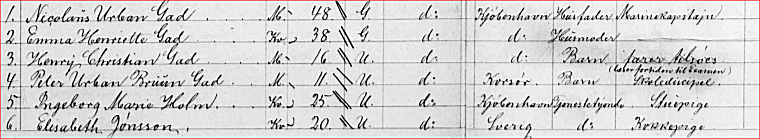 1. Nicolaus Urban Gad M. 48 G d: Kjöbenhavn Husfader Marinekapitajn.
2 Emma Henriette Gad Kv. 38 G d: d: Husmoder
3. Henry Christian Gad M. 16 U. d: d: Barn farer tilsöes
(læser fortiden til Examen)
4 Peter Urban Brüün Gad M. 11 U. d: Korsör. Barn Skoledicipel.
5 Ingeborg Marie Holm K. 25 U. d: Kjöbenhavn Tjenestetyende Stuepige
6. Elisabeth Jönsson. Kv. 20. U. d: Sverig d: Kokkepige